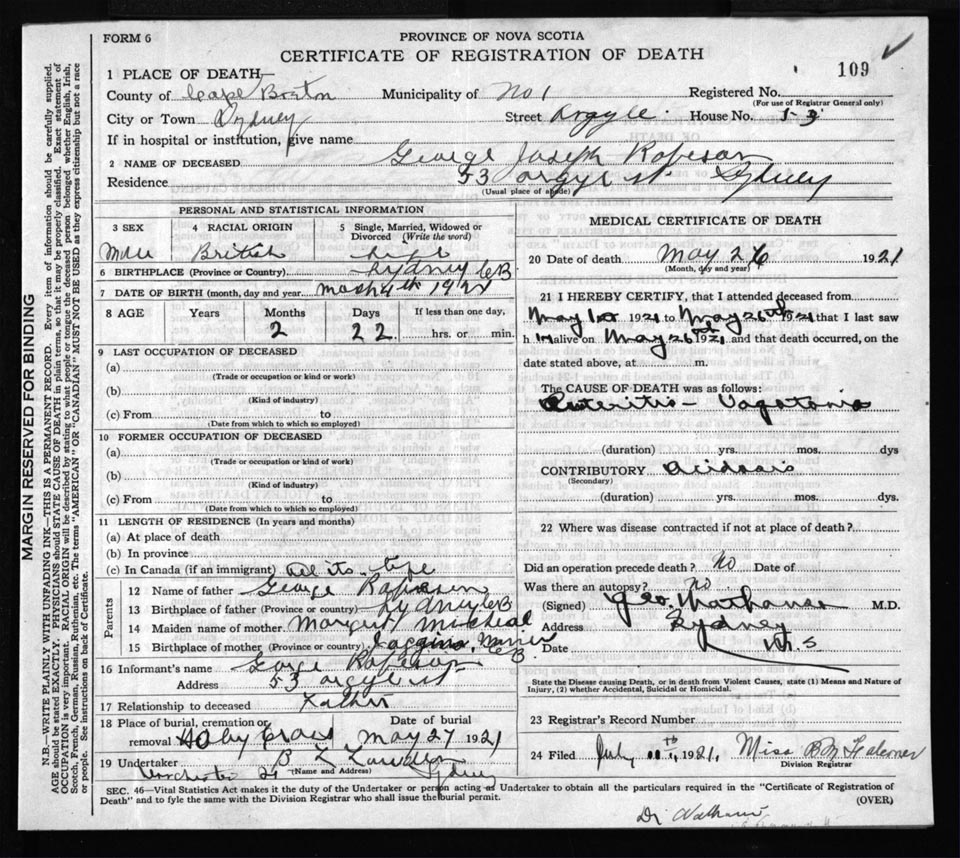 FORM 6
PROVINCE OF NOVA SCOTIA
CERTIFICATE OF REGISTRATION OF DEATH
109
1 PLACE OF DEATH
County of Cape Breton Municipality of No 1 Registered No.
(For use of Registrar General only)
City or Town Sydney Street Argyle House No. 53
If in hospital or institution, give name
2 NAME OF DECEASED George Joseph
Residence 53 Argyle St. Sydney
(Usual place of abode)
PERSONAL AND STATISTICAL INFORMATION
3 SEX 4 RACIAL ORIGIN 5 Single, Married, Widowed or Divorced (Write the word)
Male British
6 BIRTHPLACE (Province or Country) Sydney CB
7 DATE OF BIRTH (month, day and year) March 4th 1921
8 AGE Years Months Days If less than one day,
2 22 hrs. or min.
9 LAST OCCUPATION OF DECEASED
(a)
(Trade or occupation or kind or work)
(b)
(Kind of industry)
(c) From to
(Date from which to which so employed)
10 FORMER OCCUPATION OF DECEASED
(a)
(Trade or occupation or kind of work)
(b)
(Kind of industry)
(c) From to
(Date from which to which so employed)
11 LENGTH OF RESIDENCE (In years and months)
(a) At place of death
(b) In province
(c) In Canada (if an immigrant) all its life
Parents
12 Name of father George
13 Birthplace of father (Province or country) Sydney CB
14 Maiden name of mother Margret Micheal
15 Birthplace of mother (Province or country) Joggins Mines CB
16 Informant's name George
Address 53 Argyle St
17 Relationship to deceased Father
18 Place of burial, cremation or removal Holy Cross Date of burial May 27 1921
19 Undertaker B L
(Name and Address) Dorchester St Sydney
MEDICAL CERTIFICATE OF DEATH
20 Date of death May 26 1921
(Month, day and year)
21 I HEREBY CERTIFY, that I attended deceased from
May 1921 to May 26th 1921 that I last saw
h im alive on May 26th 1921 and that death occurred, on the
date stated above, at m.
The CAUSE OF DEATH was as follows:
Enteritis - Vagotonia
(duration) yrs. mos. dys
CONTRIBUTORY Acidosis
(Secondary)
(duration) yrs. mos. dys.
22 Where was disease contracted if not at place of death?
Did an operation precede death? No Date of
Was there an autopsy? No
(Signed) Geo. M.D.
Address Sydney
Date N.S
State the Disease causing Death, or in death from Violent Causes, state (1) Means and Nature of Injury, (2) whether Accidental, Suicidal or Homicidal.
23 Registrar's Record Number
24 Filed July 1921, Miss B M Falconer
Division Registrar
SEC. 46—Vital Statistics Act makes it the duty of the Undertaker or person acting as Undertaker to obtain all the particulars required in the "Certificate of Registration of
Death" and to fyle the same with the Division Registrar who shall issue the burial permit.
(OVER)
Dr
MARGIN RESERVED FOR BINDING
N.B.—WRITE PLAINLY WITH UNFADING INK—THIS IS A PERMANENT RECORD. Every item of information should be carefully supplied.
AGE should be stated EXACTLY. PHYSICIANS should STATE CAUSE OF DEATH in plain terms, so that it may be properly classified. Exact statement of
OCCUPATION is very important. RACIAL ORIGIN will be described by stating to what people or tongue the deceased person belonged whether English, Irish,
Scotch, French, German, Russian, Ruthenian, etc. The terms "AMERICAN" OR "CANADIAN" MUST NOT BE USED as they express citizenship but not a race
or people. See instructions on back of Certificate.